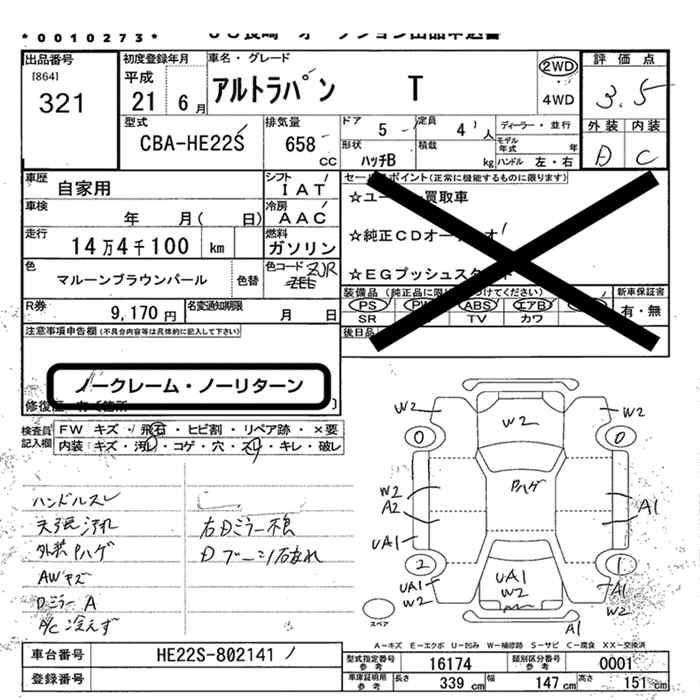 *0010273*
出品番号 [864] 321
初度登録年月 平成 21年 6月
車名・グレード アルトラパン T
2WD 4WD
評価点 3.5
外装 D 内装 C
型式 CBA-HE22S
排気量 658 cc
ドア 5
定員 4人
形状 ハッチB
積載 kg
ディーラー・並行
モデル年式 年
ハンドル 左・右
車歴 自家用
シフト IAT
車検 年 月( 日)
冷房 AAC
走行 14万4千100 km
燃料 ガソリン
色 マルーンブラウンパール 色替
色コード ZJR
R券 9,170円
名変通知期限 月 日
セールスポイント(正常に機能するものに限ります)
☆ユーザー買取車
☆純正CDオーディオ
☆EGプッシュスタート
PS PW ABS エアB
SR TV カワ
新車保証書 有・無
後日品
注意事項申告欄(不具合内容等は具体的に記入して下さい)
ノークレーム・ノーリターン
検査員記入欄
FW キズ・飛石・ヒビ割・リペア跡・×要
内装 キズ・汚レ・コゲ・穴・スレ・キレ・破レ
ハンドルスレ
天張汚れ
外装Pハゲ
AWキズ
Dミラー A
A/C 冷えず
右Dミラー不良
D ブーツ破れ
W2 W2
0 W2 0
Pハゲ
W2
A2 A1
UA1
2 1
UA1 W2
UA1 W2
A1 W2
A1
スペア
A-キズ E-エクボ U-凹み W-補修跡 S-サビ C-腐食 XX-交換済
車台番号 HE22S-802141
登録番号
型式指定番号 参考 16174
類別区分番号 参考 0001
車庫証明用 参考 長さ 339cm 幅 147cm 高さ 151cm